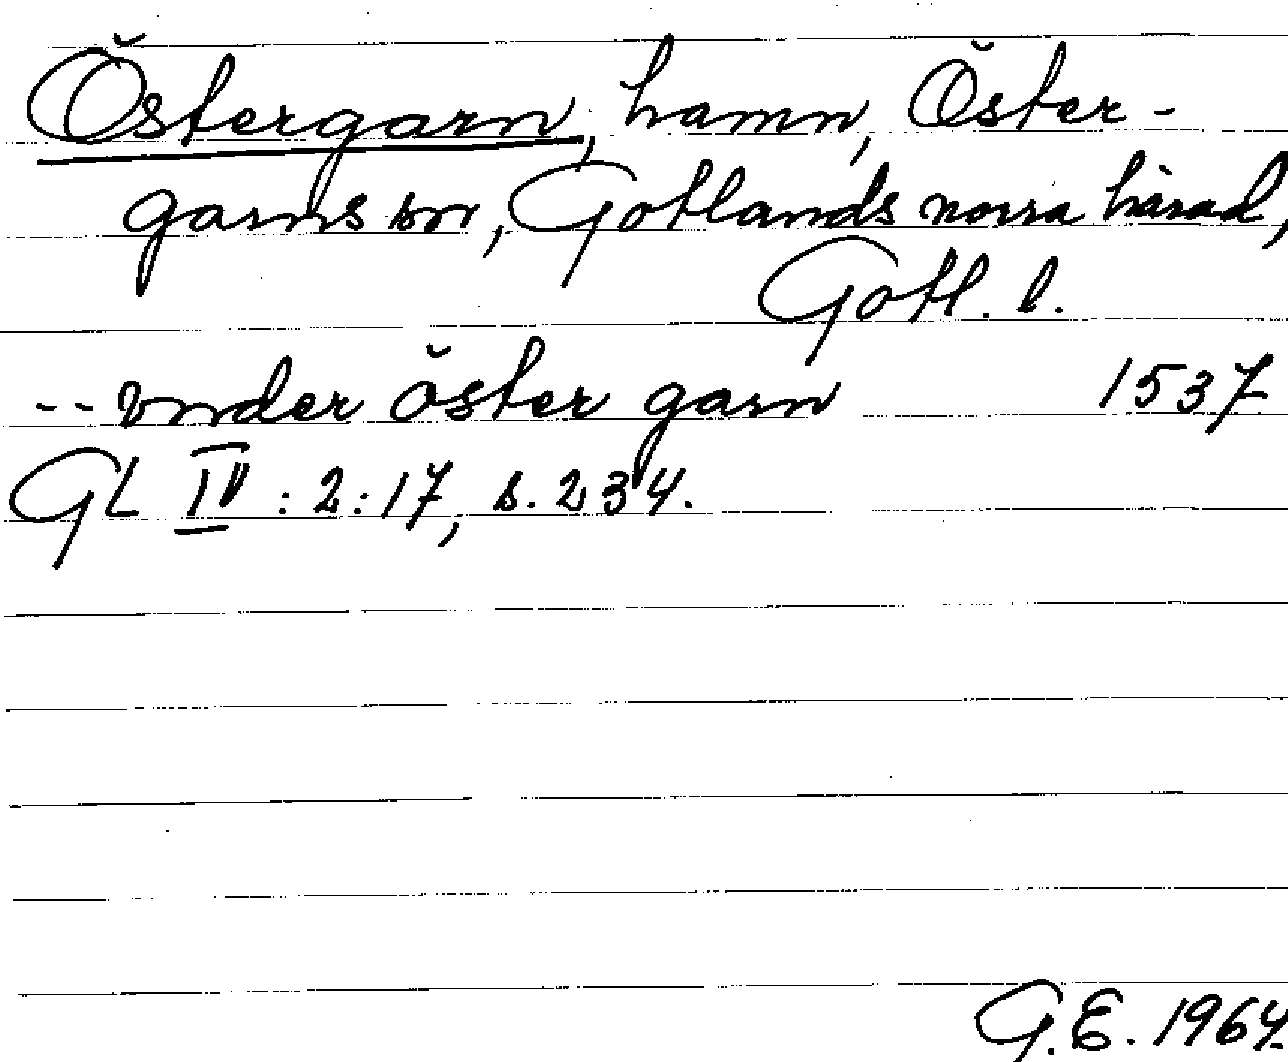 Östergarn, hamn, Öster-
garns sn, Gotlands norra härad,
Gotl. l.
-- vnder öster garn 1537
GL IV : 2:17, s. 234.
G.E. 1964